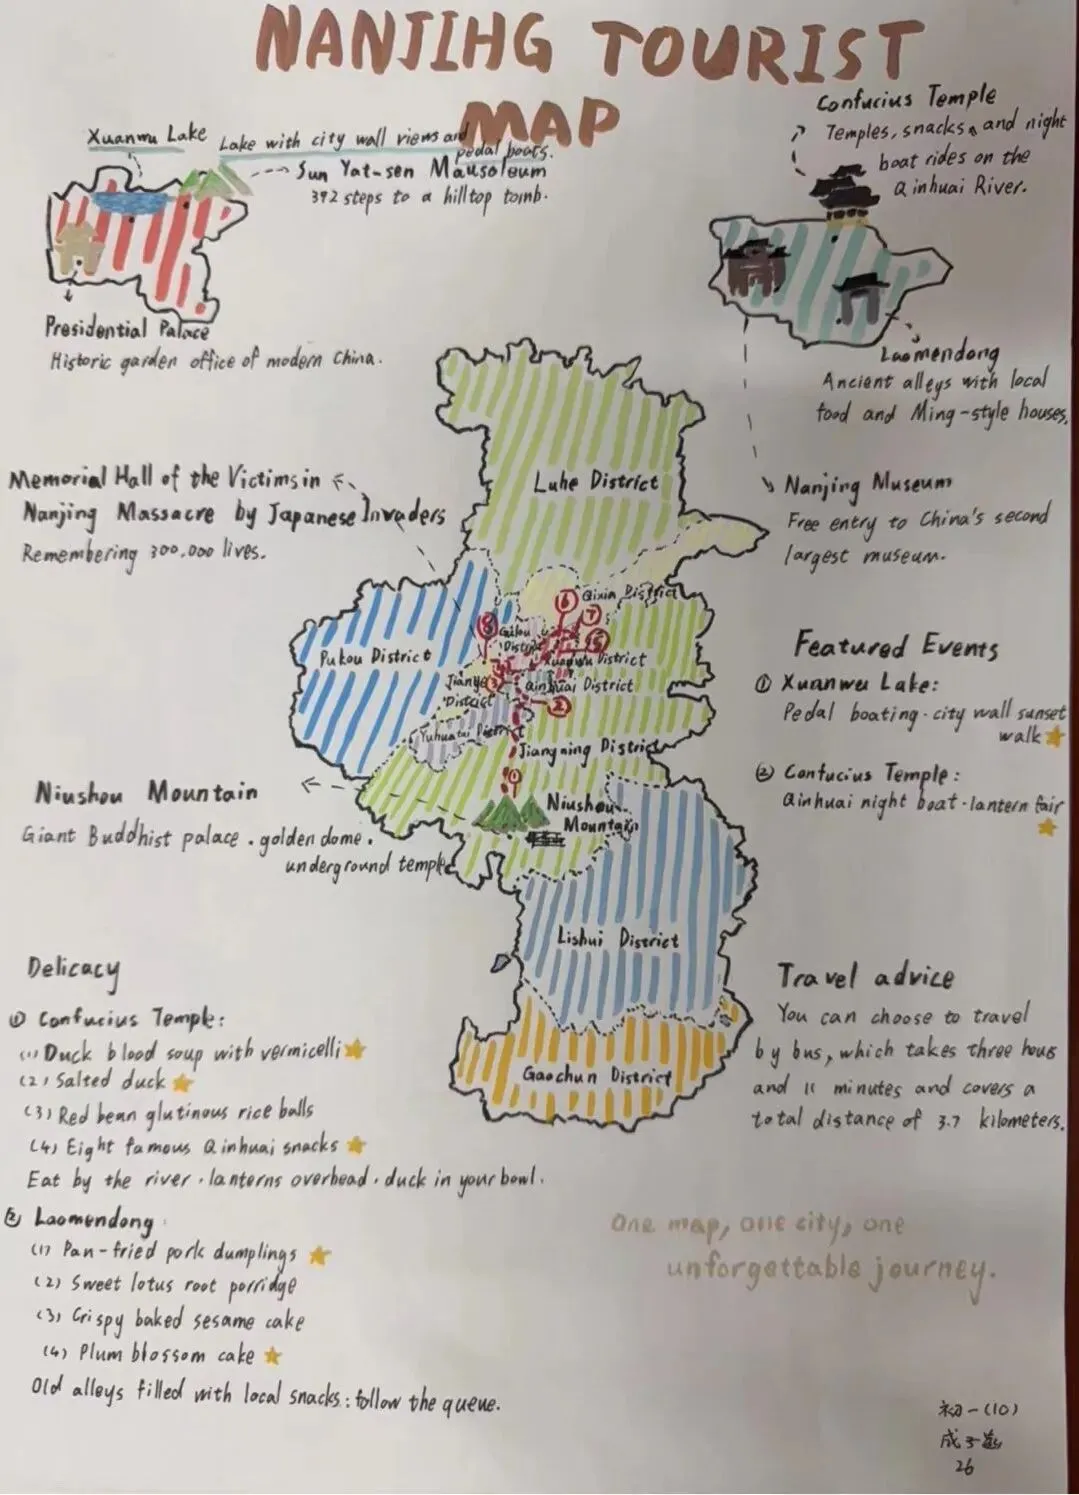 NANJIHG TOURIST
MAP
Xuanwu Lake
Lake with city wall views and
pedal boats.
Sun Yat-sen Mausoleum
392 steps to a hilltop tomb.
Presidential Palace
Historic garden office of modern China.
Confucius Temple
Temples, snacks, and night
boat rides on the
Qinhuai River.
Laomendong
Ancient alleys with local
food and Ming-style houses.
Memorial Hall of the Victims in
Nanjing Massacre by Japanese Invaders
Remembering 300,000 lives.
Nanjing Museum
Free entry to China's second
largest museum.
Luhe District
Qixia District
6
7
8
5
Gulou
District
Pukou District
Xuanwu District
Jianye
District
3
Qinhuai District
2
Yuhuatai District
Jiangning District
1
Niushou
Mountain
Lishui District
Gaochun District
Featured Events
① Xuanwu Lake:
Pedal boating · city wall sunset
walk
② Confucius Temple:
Qinhuai night boat · lantern fair
Niushou Mountain
Giant Buddhist palace . golden dome .
underground temple
Delicacy
① Confucius Temple:
(1) Duck blood soup with vermicelli
(2) Salted duck
(3) Red bean glutinous rice balls
(4) Eight famous Qinhuai snacks
Eat by the river · lanterns overhead · duck in your bowl.
② Laomendong
(1) Pan-fried pork dumplings
(2) Sweet lotus root porridge
(3) Crispy baked sesame cake
(4) Plum blossom cake
Old alleys filled with local snacks: follow the queue.
Travel advice
You can choose to travel
by bus, which takes three hous
and 11 minutes and covers a
total distance of 3.7 kilometers.
One map, one city, one
unforgettable journey.
初一(10)
成子
26